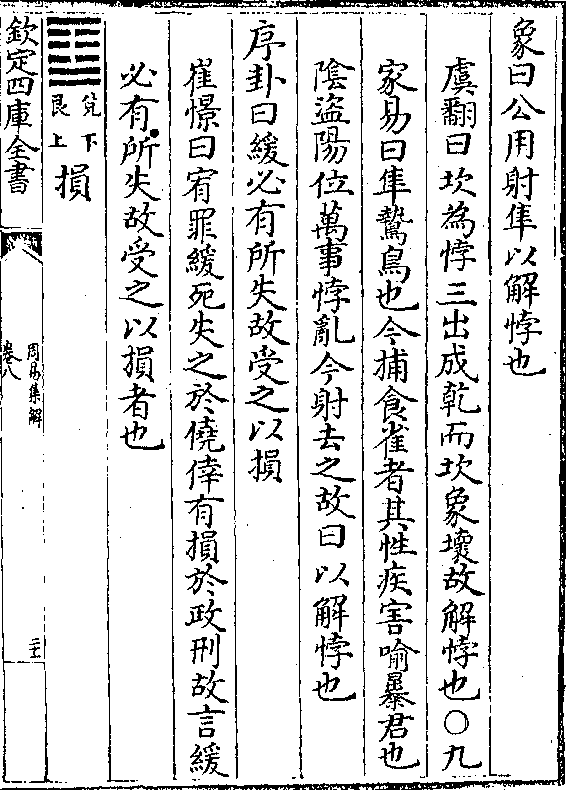 象曰公用射隼以解悖也
虞翻曰坎為悖三出成乾而坎象壞故解悖也○九
家易曰隼鷙鳥也今捕食雀者其性疾害喻暴君也
陰盜陽位萬事悖亂今射去之故曰以解悖也
序卦曰緩必有所失故受之以損
崔憬曰宥罪緩死失之於僥倖有損於政刑故言緩
必有所失故受之以損者也
兌下
艮上
損
欽定四庫全書
周易集解
卷八